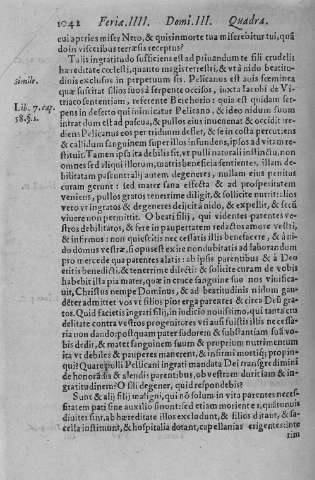 1042 Feriæ. IIII. Domi. III. Quadra.
cui aperies miser Nero, & quis in morte tua miserebitur tui, quã
do in visceribus terræ sis receptus?
Talis ingratitudo sufficiens est ad priuandum te fili crudelis
hæreditate cœlesti, quanto magis terrestri, & vt à nido beatitu-
dinis exclusus in perpetuum sis. Pelicanus est auis fœminea
Simile.
quæ suscitat filios suos à serpente occisos, iuxta Iacobi de Vi-
triaco sententiam, referente Berchorio: quia est quidam ser-
Lib. 7. cap.
pens in deserto qui inimicatur Pelicano, & ideo nidum suum
58. §. 1.
intrat dum est ad pascua, & pullos eius inuenenat & occidit: re-
diens Pelicanus eos per triduum deflet, & se in costa percutiens
& callidum sanguinem super illos infundens, ipsos ad vitam re-
stituit. Tamen ipsi ita debilis fit, vt pulli naturali instinctu, non
omnes sed aliqui illorum, tot tris beneficia sentientes, illam de-
bilitatam pascunt: alij autem degeneres, nullam eius penitus
curam gerunt: sed mater sana effecta & ad prosperitatem
veniens, pullos gratos tenerrime diligit, & solicite nutrit: filios
vero vt ingratos & degeneres deijcit à nido, & expellit, & secũ
viuere non permittit. O beati filij, qui videntes parentes ve-
stros debilitatos, & fere in paupertatem redactos amore vestri,
& infirmos: non quiescitis nec cessatis illis benefacere, & à ni-
do domus vestræ, si opus est exire non dubitatis ad laborandum
pro mercede qua parentes alatis: ab ipsis parentibus & à Deo
eritis benedicti, & tenerrime dilecti: & solicite curam de vobis
habebit illa pia mater, quæ in cruce sanguine suo nos viuifica-
uit, Christus nempe Dominus, & ad beatitudinis nidum gau-
dēter admittet vos vt filios pios erga parentes & circa Deũ gra-
tos. Quid facietis ingrati filij, in iudicio nouissimo, qui tanta cru
delitate contra vestros progenitores vti ausi fuistis illis necessa-
ria non dando, postquam pater sudorem & substantiam suã vo-
bis dedit, & mater sanguinem suum & proprium nutrimentum
ita vt debiles & pauperes manerent, & infirmi mortisq; propin-
qui? Quare pulli Pelicani ingrati mandata Dei transgredimini
de honorãdis & alendis parentibus, ob vestram duritiam & in-
gratitudinem? O fili degener, quid respondebis?
Sunt & alij filij maligni, qui nõ solum in vita parentes neces-
sitatem pati sine auxilio sinunt: sed etiam moriente s, quãtumuis
diuites sint, ab hæreditate illos excludunt, & filios ditant, & sa-
cella instituunt, & hospitalia dotant, capellanias erigentes: inte
rim